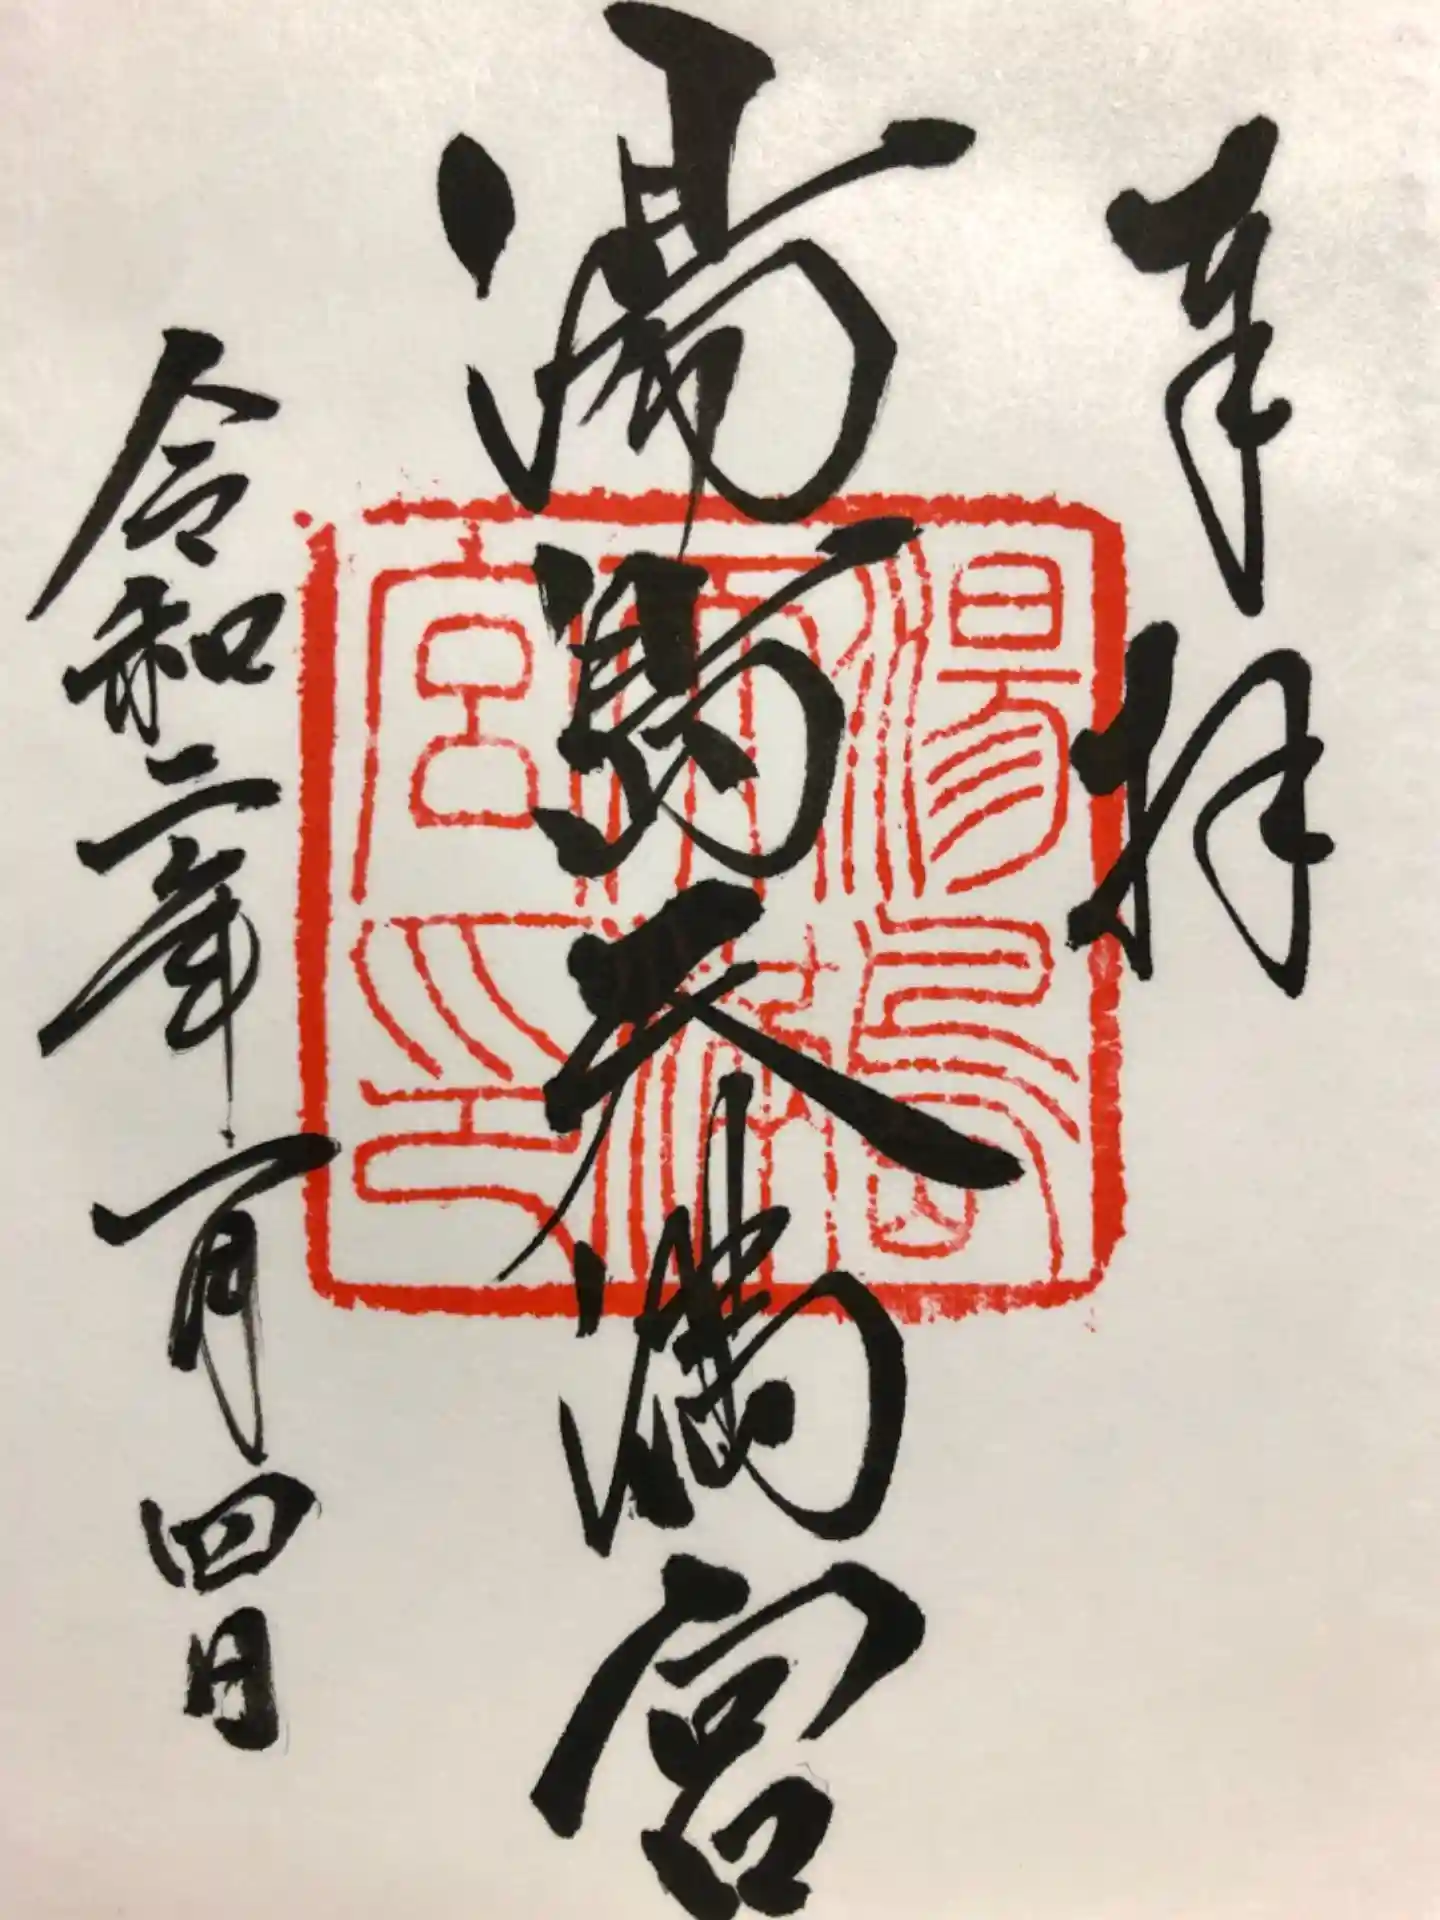 奉拝
湯島天満宮
令和二年一月四日
湯島
天滿
宮印